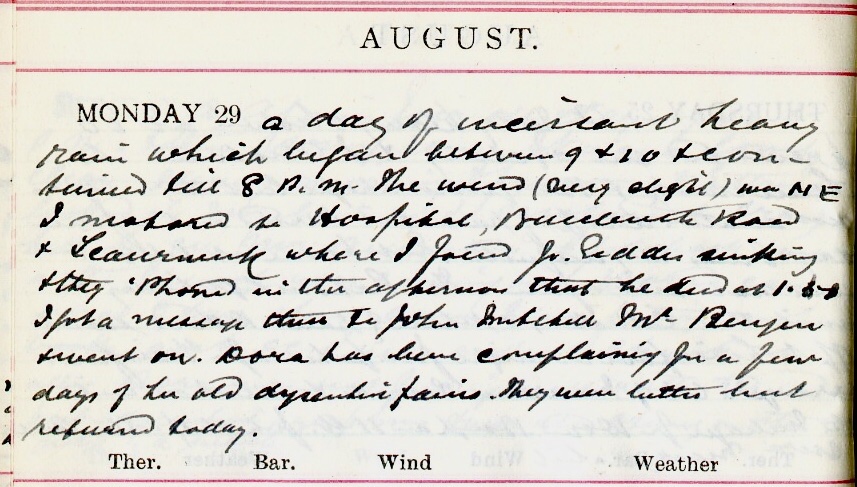 AUGUST.
MONDAY 29 a day of incessant heavy
rain which began between 9 & 10 & con-
tinued till 8 P.m. The wind (very slight) was NE
I motored to Hospital, Road
& where I found Jo. Geddes sinking
& they 'Phoned in the afternoon that he died at 1.50
I got a message then to John Mitchell Mt
& went on. Dora has been complaining for a few
days of her old dysenteric pains. They were better but
returned today.
Ther. Bar. Wind Weather